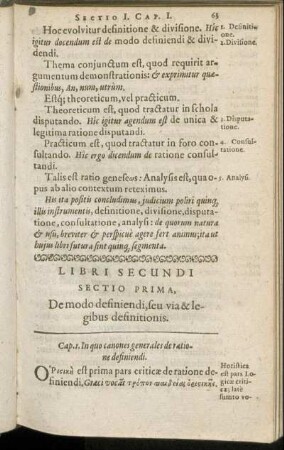 SECTIO I. CAP. I. 65
Hoc evolvitur definitione & divisione. Hic
igitur docendum est de modo definiendi & divi-
dendi.
1. Definiti-
one.
2. Divisione.
Thema conjunctum est, quod requirit ar-
gumentum demonstrationis: & exprimatur quæ-
stionibus, An, num, utrùm.
Estq; theoreticum, vel practicum.
Theoreticum est, quod tractatur in schola
disputando. Hic igitur agendum est de unica &
legitima ratione disputandi.
3. Disputa-
tione.
Practicum est, quod tractatur in foro con-
sultando. Hic ergo dicendum de ratione consul-
tandi.
4. Consul-
tatione.
Talis est ratio geneseως: Analysis est, qua o-
pus ab alio contextum reteximus.
5. Analysi.
His ita positis concludimus, judicium poliri quinq;
illis instrumentis, definitione, divisione, disputa-
tione, consultatione, analysi: de quorum natura
& usu, breviter & perspicuè agere fert animus; ita ut
hujus libri futura sint quinq; segmenta.
LIBRI SECUNDI
SECTIO PRIMA,
De modo definiendi, seu via & le-
gibus definitionis.
Cap. 1. In quo canones generales de ratio-
ne definiendi.
Ὁριστικὴ est prima pars criticæ de ratione de-
finiendi. Græci vocant
Horistica
est pars Lo-
gicæ criti-
cæ; latè
sumto vo-